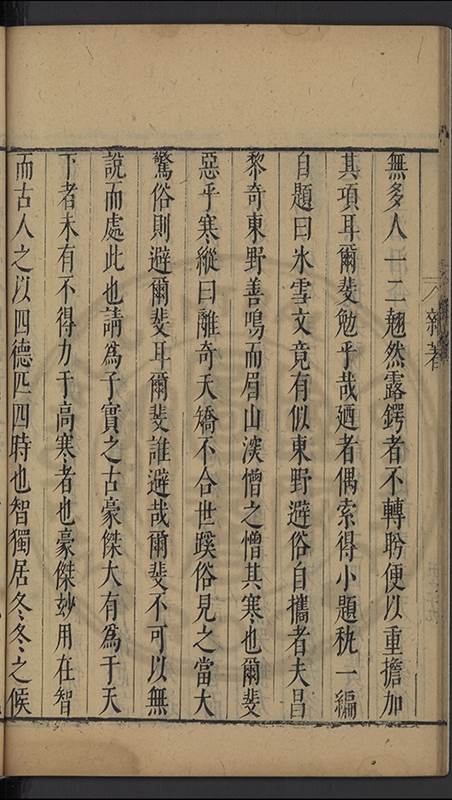 無多人一二翹然露鍔者不轉盻便以重擔加
其項耳爾斐勉乎哉廼者偶索得小題秇一編
自題曰氷雪文竟有似東野避俗自攜者夫昌
黎奇東野善鳴而眉山深憎之憎其寒也爾斐
惡乎寒縱曰離奇夭矯不合世蹊俗見之當大
驚俗則避爾斐耳爾斐誰避哉爾斐不可以無
說而處此也請為子實之古豪傑大有為于天
下者未有不得力于高寒者也豪傑玅用在智
而古人之以四德匹四時也智獨居冬冬之候